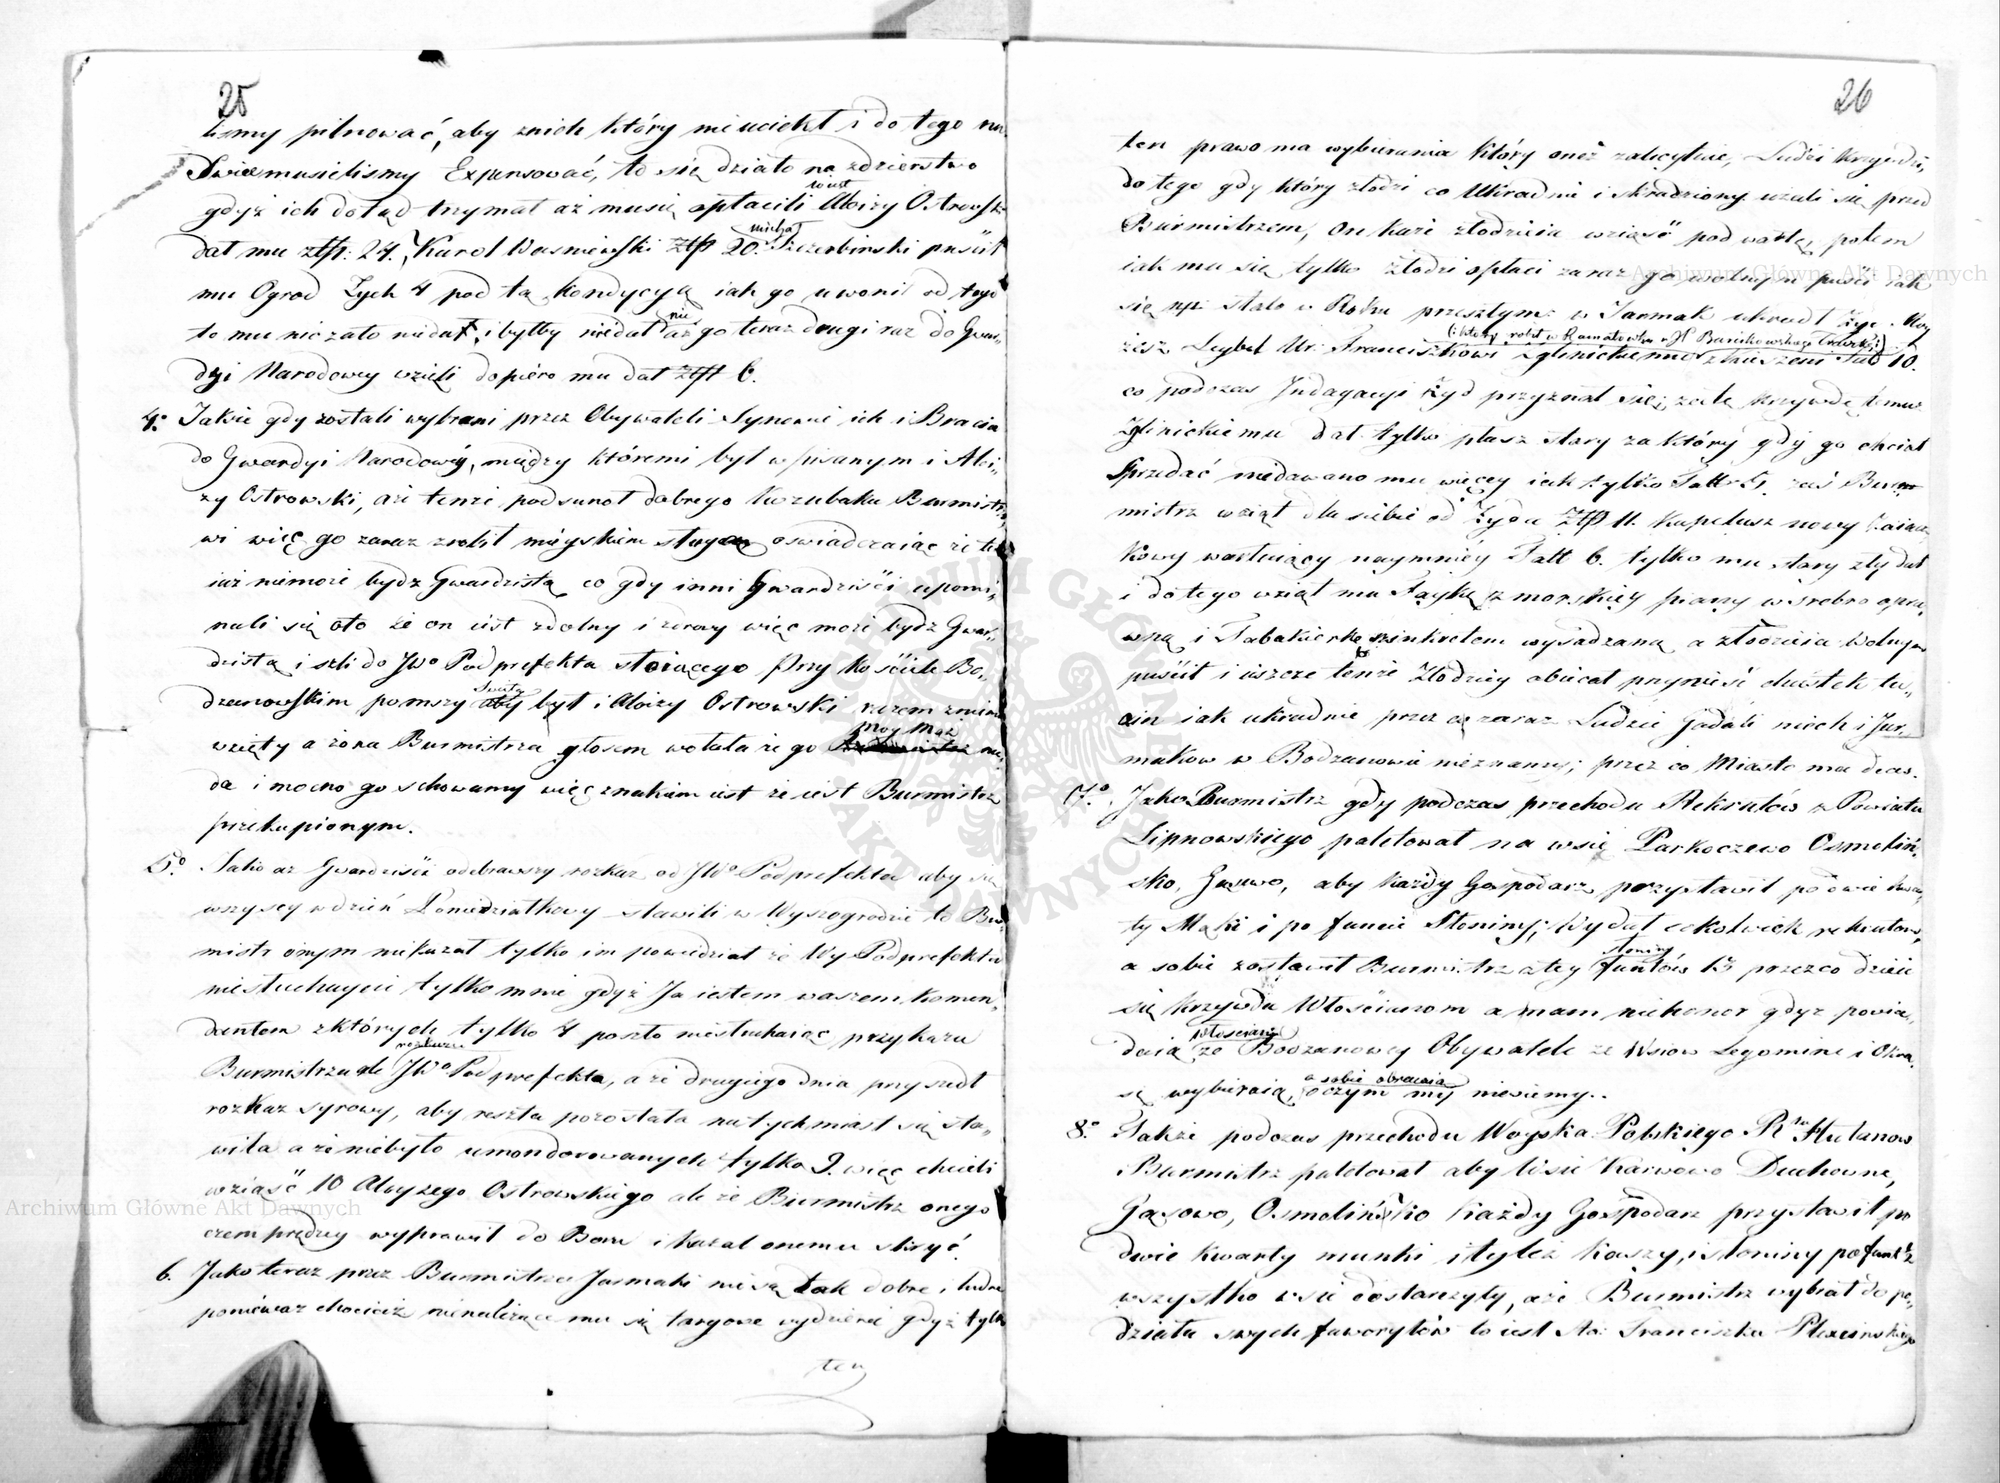 25
liśmy pilnować, aby znich który nieuciekł i do tego na
Swiecemusielismy Expensować, to się działo na zdzierstwo
gdyż ich dotąd trzymał aż musię opłacili to iest Aloizy Ostrowski
dał mu złłp: 24. Karol Wasniewski złłp 20. Michał Szczerbinski puścił
mu Ogrod Zych 4 pod tą kondycyą iak go uwonił od tego
to mu nic zato niedał, i byłby niedał aż nie go teraz drugi raz do Gwar
dyi Narodowey wzieli dopiero mu dał złłp 6.
4o Takie gdy zostali wybrani przez Obywateli Synowie ich i Bracia
do Gwardyi Narodowéy, między któremi był wpisanym i Aloi,
zy Ostrowski, aże tenże podsunoł dobrego Kozubaka Burmistrzo,
wi więc go zaraz zrobił mieyskim sługą oswiadczaiąc że ten
iuż niemoże bydz Gwardzistą co gdy inni Gwardziści upomi,
nali się oto że on iest zdolny i zdrowy więc może bydz Gwar,
dzistą i szli do JWo Podprefekta stoiącego przy Kościele Bo,
dzanowskim pomszy Swięty aby był i Aloizy Ostrowski razem znimi
wzięty a żona Burmistrza głosem wołała że go moy Mąż nie,
da i mocno go schowamy więc znakiem iest że iest Burmistrz
przekupionym.
5o Jako aż Gwardziści odebrawszy rozkaz od JWo Podprefekta aby się
wszyscy wdzień Poniedziałkowy stawili w Wyszogrodzie to Bur
mistrz onym niekazał tylko im powiedział że Wy Podprefekta
niesłuchaycie tylko mnie gdyż Ja iestem waszem Komen,
dantem zktórych tylko 4 poszło niesłuchaiąc przykazu
Burmistrza ale rozkazu JWo Podprefekta, a że drugiego dnia przyszedł
rozkaz surowy, aby reszta pozostała natychmiast się sta,
wiła a że niebyło umondorowanych tylko 9. więc chcieli
wziąść 10 Aloyzego Ostrowskiego ale że Burmistrz onego
czemprędzey wyprawił do Boru i kazał onemu skryć.
6. Jako teraz przez Burmistrza Jarmaki niesą tak dobre i ludne
ponieważ chociciż nienależące mu się targowe wydziera gdyż tylko
ten
26
ten prawo ma wybierania który oneż zalicytuie, Ludzi krzywdzi,
do tego gdy który złodzi co Ukradnie i skradziony użali się przed
Burmistrzem, On każe złodzieia wziąść pod wartę, potem
iak mu się tylko złodzi opłaci zaraz go wolnym puści iak
się np: stało w Roku przeszłym w Jarmak ukradł Zyd Moy
żesz Leybel Ur: Franciszkowi Zglinickiemu z kieszeni Tal: 10.
co podczas Indagacyi Żyd przyznał się; zatę krzywdę temuż
Zglinickiemu dał tylko płasz stary zaktóry gdy go chciał
Sprzedać niedawano mu więcy iak tylko Tall 5. zaś Burm
mistrz wziął dla siebie od Żyda Złłp 11. Kapelusz nowy
kowy wartuiący naymniéy Tall 6. tylko mu stary zły dał
i do tego wziął mu Faykę z morskiéy piany w srebro opra,
wną i Tabakierkę szinkretem wysadzaną a złodzieia Wolnym
puścił i ieszcze tenże Złodziey obiecał przynieść chustek tu,
zin iak ukradnie przez co zaraz Ludzie Gadali niech i Jar,
maków w Bodzanowie nieznamy; przez co Miasto ma decess.
7o. Jako Burmistrz gdy podczas przechodu Rekrutów z Powiatu
Lipnowskiego paletował na wsię Parkoczewo Osmoliń,
sko, Gąsewo, aby każdy Gospodarz przystawił po dwie kwar,
ty Mąki i po funcie Słoniny; Wydał cokolwiek rekrutom,
a sobie zostawił Burmistrz atey słoniny funtów 15 przezco dzieie
się krzywda Włościanom a nam niehonor gdyż powia,
daią włościanie że Bodzanowcy Obywatele ze Wsiow Legominę i Okra,
sę wybieraią, a sobie obracaią o czym my niewiemy..
8o Także podczas przechodu Woyska Polskiego Rtu Hulanow
Burmistrz paletował aby wsie Karwowo Duchowne,
Gąsowo, Osmolińsko każdy Gospodarz przystawił po
dwie kwarty munki i tylez kaszy, i słoniny po funt ½
wszystko wsie dostarczyły, aże Burmistrz wybrał do po,
działu swych faworytów to iest Franciszka Pleczińskiego